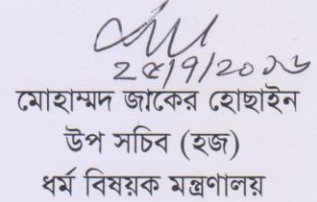 ২৫/৭/২০১৬
মোহাম্মদ জাকের হোছাইন
উপ সচিব (হজ)
ধর্ম বিষয়ক মন্ত্রণালয়